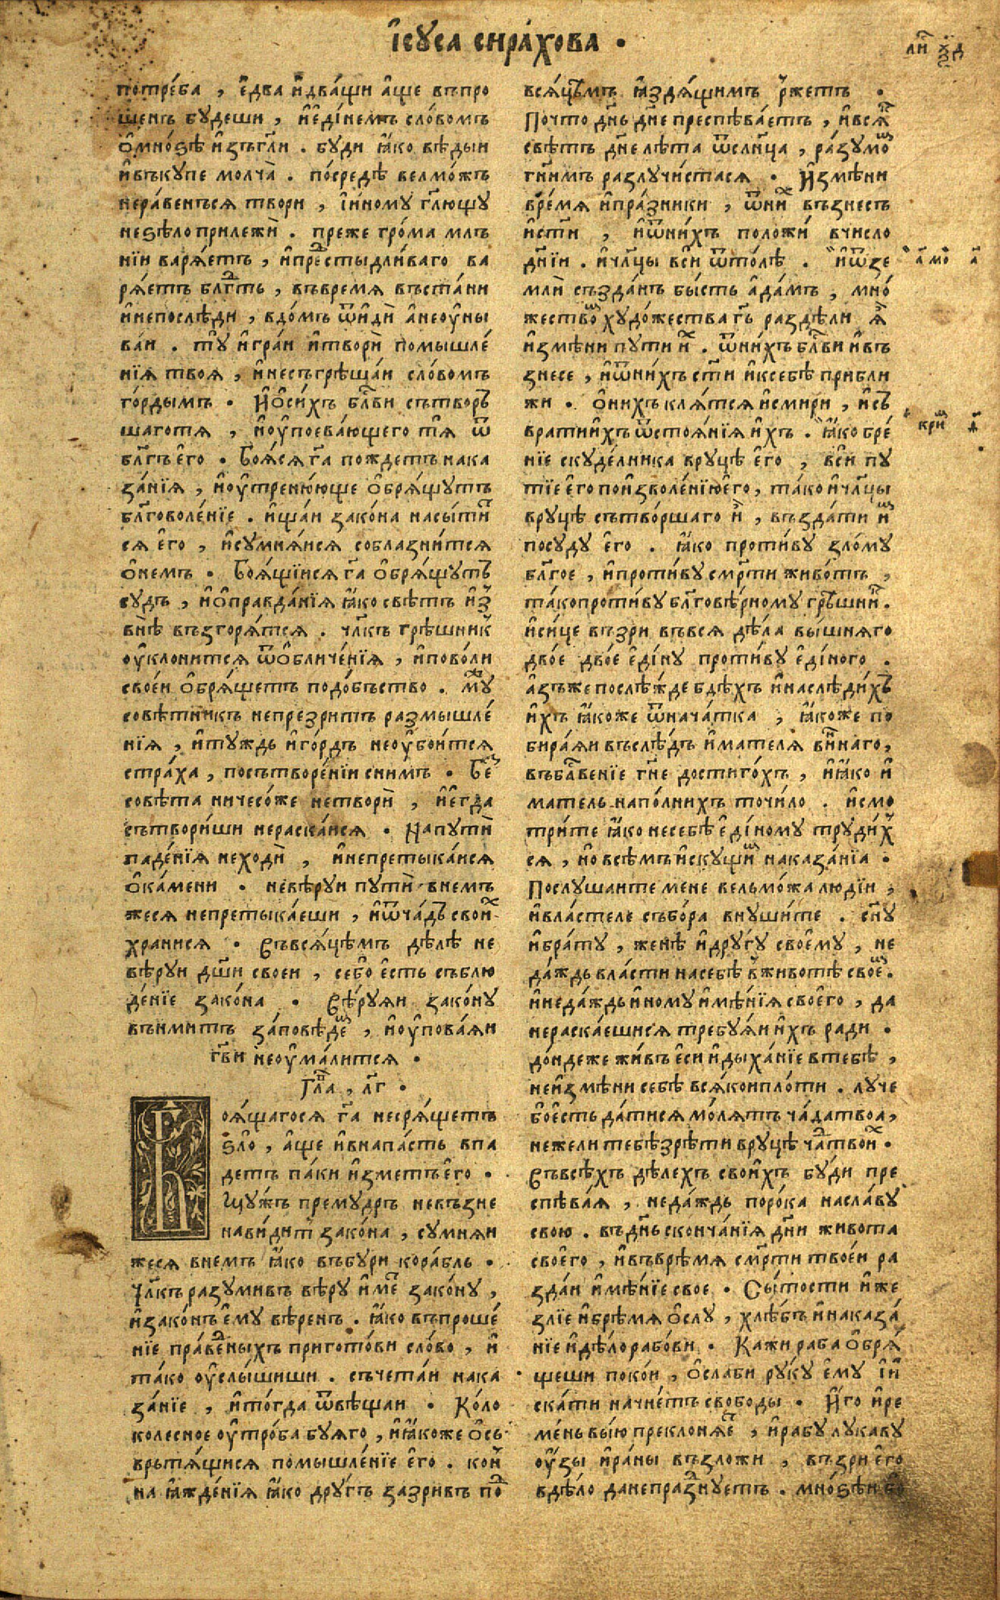 і҆сꙋса сира́хова .
потре́ба , є҆два и҆два́щи а҆ще въпро
шенъ бꙋдеши , и҆є҆ді́немъ сло́вомъ
ѻ҆мно́ѕѣ и҆зъгл҃и . бꙋди ꙗ҆ко вѣдыи
и҆въкꙋпе молча̀ . по́средѣ велмо́жъ
нера́венъсѧ твори , і҆и҆номꙋ гл҃ющꙋ
неѕѣло прилежѝ . преже гро́ма млъ
нїи варѧ́етъ , и҆пре́стыдли́ваго ва
рѧ́етъ блг҃ть , въвремѧ въста́ни
и҆непослѣди , вдо́мъ ѿи҆дѝ а҆неоу҆ны
ва́и . тꙋ̀ и҆гра́и и҆творѝ помышле́
нїѧ твоѧ , и҆несъгрѣща́и сло́вомъ
го́рдымъ . И҆ѻ҆си́хъ бл҃ви сътворь
шаготѧ , и҆оу҆поева́ющего тѧ̀ ѿ
бл҃гъ є҆го . Боѧ́йсѧ гд҃а пождетъ нака
за́нїѧ , и҆оу҆тренююще ѻ҆брѧ́щꙋтъ
бл҃говоле́нїе . и҆ща́и зако́на насы́ти
сѧ є҆го , и҆сꙋмнѧ́исѧ соблазни́тсѧ
ѻ҆немъ . Боѧ́щїисѧ гд҃а ѻ҆брѧ́щꙋтъ
сꙋдъ , и҆ѻ҆правда́нїѧ ꙗ҆ко свѣтъ и҆з̾
внѣ възгорѧ́тсѧ . чл҃къ грѣшникъ
оу҆клонитсѧ ѿѻ҆бличе́нїѧ , и҆пово́ли
своеи ѻ҆брѧ́щетъ подо́бъство . мꙋ
совѣтникъ непрезритъ размышле́
нїѧ , и҆тꙋждь и҆го́рдъ неоу҆бои́тсѧ
стра́ха , посътворе́нїи снимъ . Без̾
совѣта ничесо́же нетворѝ , и҆є҆гда
сътвори́ши нераска́исѧ . Напꙋтѝ
паде́нїѧ неходѝ , и҆непретыка́исѧ
ѻ҆ка́мени . невѣрꙋи пꙋтѝ внемъ
жесѧ непретыка́еши , и҆ѿча́дъ свои
храни́сѧ . Въвсѧ́цѣмъ дѣлѣ не
вѣрꙋи дш҃и своеи , се́бо є҆сть съблю
де́нїе зако́на . Вѣ́рꙋѧи зако́нꙋ
въи́митъ за́повѣде , и҆оу҆пова́ѧи
гв҃и неоу҆ма́литсѧ .
Гла , лг҃ .
Боѧ́щагосѧ гд҃а несрѧ́щетъ
ѕло̀ , а҆ще и҆внапа́сть впа
детъ па́ки и҆зметъ є҆го .
Мꙋжъ премꙋдръ невъзне
нави́дитъ зако́на , сꙋмнѧи
жесѧ внемъ ꙗ҆ко въбꙋри кора́бль .
Чл҃къ разꙋмивъ вѣрꙋ и҆ме зако́нꙋ ,
и҆зако́нъ є҆мꙋ вѣренъ . ꙗ҆ко въпроше́
нїе пра́веныхъ пригото́ви сло́во , и҆
та́ко оу҆слы́шиши . съчета́и нака
за́нїе , и҆то́гда ѿвѣща́и . Ко́ло
колесное оу҆тро́ба бꙋѧго , и҆ꙗ҆коже ѻ҆сь
врътѧ́щисѧ помышле́нїе є҆го . кон
на ꙗ҆жде́нїѧ ꙗ҆ко дрꙋгъ зазривъ по
всѧ́цѣмъ ꙗ҆здѧ́щимъ ржетъ .
Почто дн҃ь дн҃е преспѣва́етъ , и҆всѧ
свѣтъ дн҃е лѣта ѿсл҃нца , ра́зꙋмо
гн҃имъ разлꙋчи́стасѧ . И҆змѣни
вре́мѧ и҆пра́зники , ѿни възнесъ
и҆ст҃и , и҆ѿни́хъ положѝ вчисло
дн҃їи . и҆чл҃цы всѝ ѿто́лѣ . и҆ѿзе
млѝ създа́нъ бысть а҆да́мъ , мно́
жество хꙋдо́жества гд҃ь разделѝ ѧ҆
и҆змѣни пꙋти и҆ . ѿни́хъ бл҃ви и҆въ
знесе , и҆ѿни́хъ ст҃и и҆ксебѣ прибли
жи . ѻ҆нихъ клѧ́тсѧ и҆смири , и҆съ
вратѝ и҆хъ ѿстоѧ́нїѧ и҆хъ . ꙗ҆ко бре́
нїе скꙋде́лника врꙋцѣ є҆го , всѝ пꙋ
тїе є҆го поизволе́нїю є҆го , та́ко и҆чл҃цы
врꙋцѣ сътво́ршаго и҆ , възда́ти и҆
посꙋдꙋ є҆го . ꙗ҆ко проти́вꙋ зло́мꙋ
бл҃гое , и҆проти́вꙋ см҃рти живо́тъ ,
та́копроти́вꙋ бл҃говѣрномꙋ грѣшни .
и҆си́це възри въвсѧ дѣла вы́шнѧго
дво́е дво́е є҆ді́нꙋ проти́вꙋ є҆ді́ного .
а҆зъже послѣжде бдѣхъ и҆наслѣди́хъ
и҆хъ ꙗ҆коже ѿнача́тка , ꙗ҆коже по
бира́ѧи въслѣдъ и҆мателѧ ви́ннаго ,
въбл҃ве́нїе гн҃е достиго́хъ , и҆ꙗ҆ко и҆
матель напо́лнихъ точи́ло . и҆смо
трите ꙗ҆ко несебѣ є҆ді́номꙋ трꙋди́х
сѧ , но всѣмъ и҆скꙋщи наказа́нїа .
Послꙋшаите мене вельмо́жа лю́дїи ,
и҆вла́стеле събо́ра внꙋши́те . сн҃ꙋ
и҆бра́тꙋ , женѣ и҆дрꙋгꙋ своє́мꙋ , не
да́ждь вла́сти насебѣ вживотѣ свое .
и҆неда́ждь и҆номꙋ и҆мѣ́нїѧ своего̀ , да
нераска́ешисѧ требꙋѧи и҆хъ ради .
до́ндеже живъ є҆си и҆дыха́нїе втебѣ ,
неи҆змѣни себѣ всѧ́коиплоти . лꙋче
бо є҆сть да́тисѧ мо́лѧтъ ча́датвоа ,
нежели тебѣ зрѣти врꙋцѣ ча́твои .
Въвсѣхъ дѣлехъ свои́хъ бꙋди пре
спѣва́ѧ , неда́ждь поро́ка насла́вꙋ
свою . въдн҃ь сконча́нїѧ дн҃и живота
своего̀ , и҆въврѣмѧ см҃рти твоеи ра
зда́и и҆мѣ́нїе свое . Сы́тости и҆же
злїе и҆брѣмѧ ѻ҆слꙋ , хлѣбъ и҆наказа́
нїе и҆дѣло рабо́ви . Кажи раба ѻ҆брѧ́
щеши поко́и , ѻ҆сла́би рꙋкꙋ є҆мꙋ і҆и
ска́ти начне́тъ свободы . И҆го и҆ре
ме́нь выю преклонѧ́е , и҆рабꙋ лꙋка́вꙋ
оу҆зы и҆ра́ны възложи , възри є҆го
вдѣло данепразнꙋетъ . мно́ѕѣи